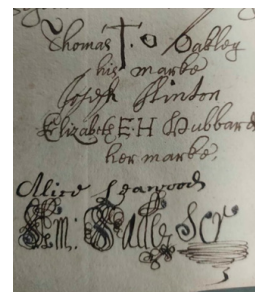 Thomas T.O Oakley
his marke
Joseph Flinton
Elizabeth E:H Hubbard
her marke,
Alice Leawood
Sem: Scr